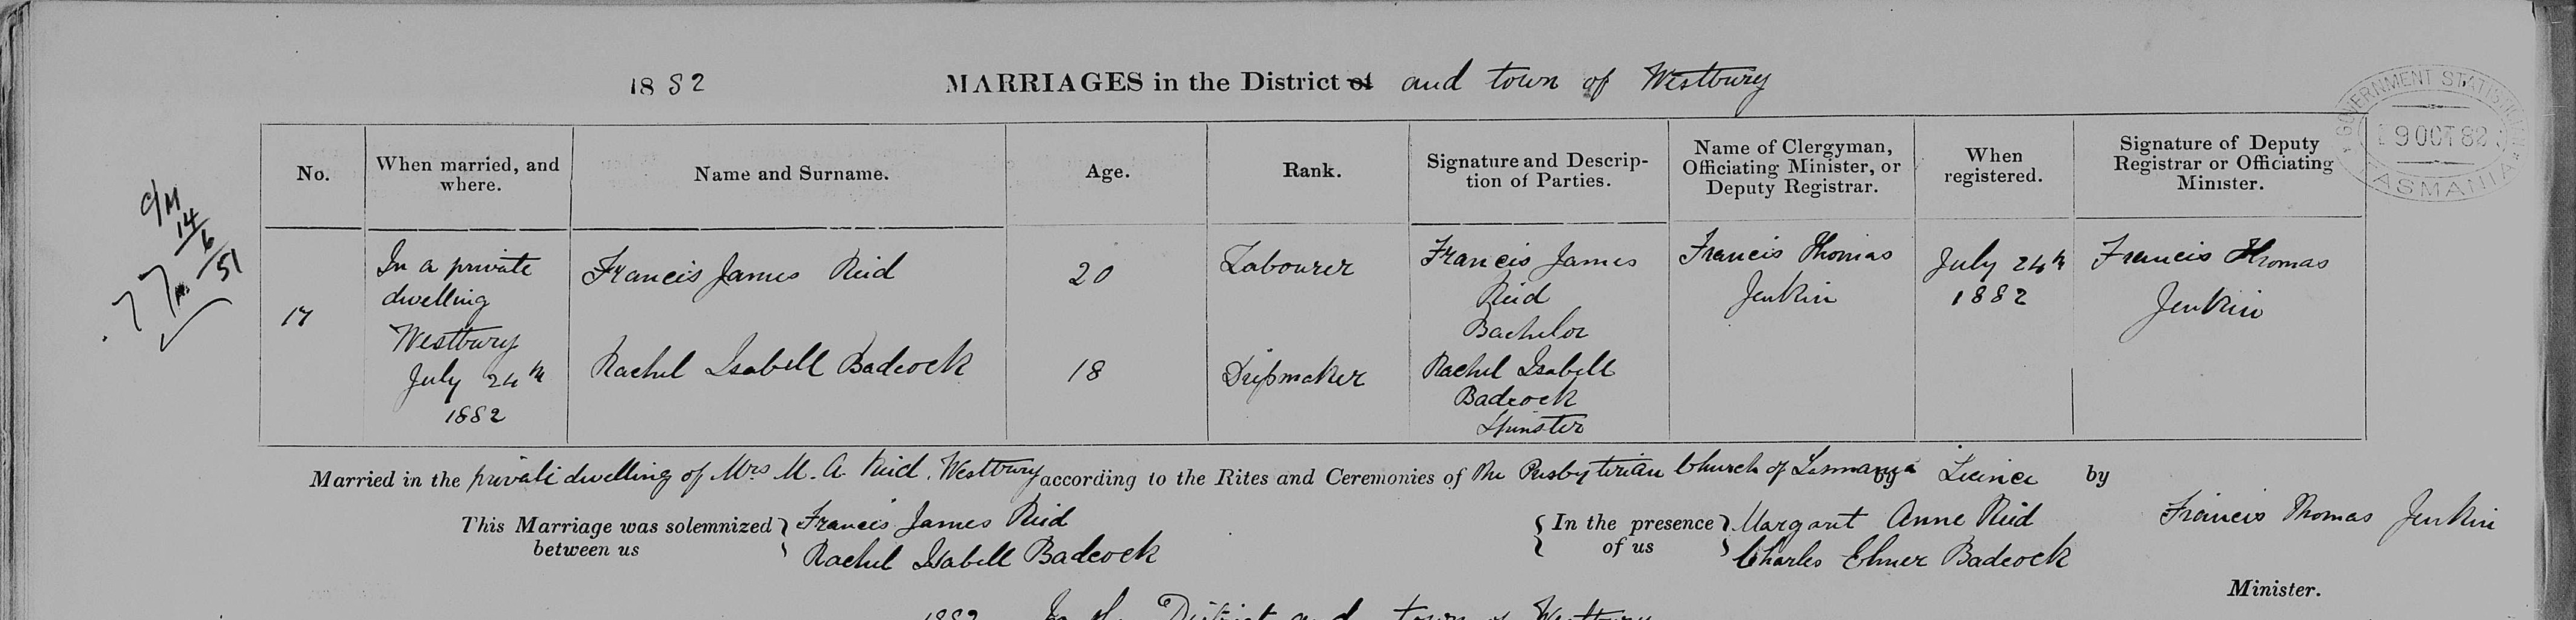 1882 MARRIAGES in the District of and town of Westbury
GOVERNMENT STATISTICIAN
9 OCT 82
TASMANIA
No.
When married, and
where.
Name and Surname.
Age.
Rank.
Signature and Descrip-
tion of Parties.
Name of Clergyman,
Officiating Minister, or
Deputy Registrar.
When
registered.
Signature of Deputy
Registrar or Officiating
Minister.
C/M
14
6
51
17
In a private
dwelling
Westbury
July 24th
1882
Francis James Reid
Rachel Isabell Badcock
20
18
Labourer
Dressmaker
Francis James
Reid
Bachelor
Rachel Isabell
Badcock
Spinster
Francis Thomas
Jenkin
July 24th
1882
Francis Thomas
Jenkin
Married in the private dwelling of Mrs M. A. Reid, Westbury according to the Rites and Ceremonies of the Presbyterian Church of Tasmania by Licince by
This Marriage was solemnized between us
Francis James Reid
Rachel Isabell Badcock
In the presence of us
Margaret Anne Reid
Charles Elmer Badcock
Francis Thomas Jenkin
Minister.
1882 In the District and town of Westbury